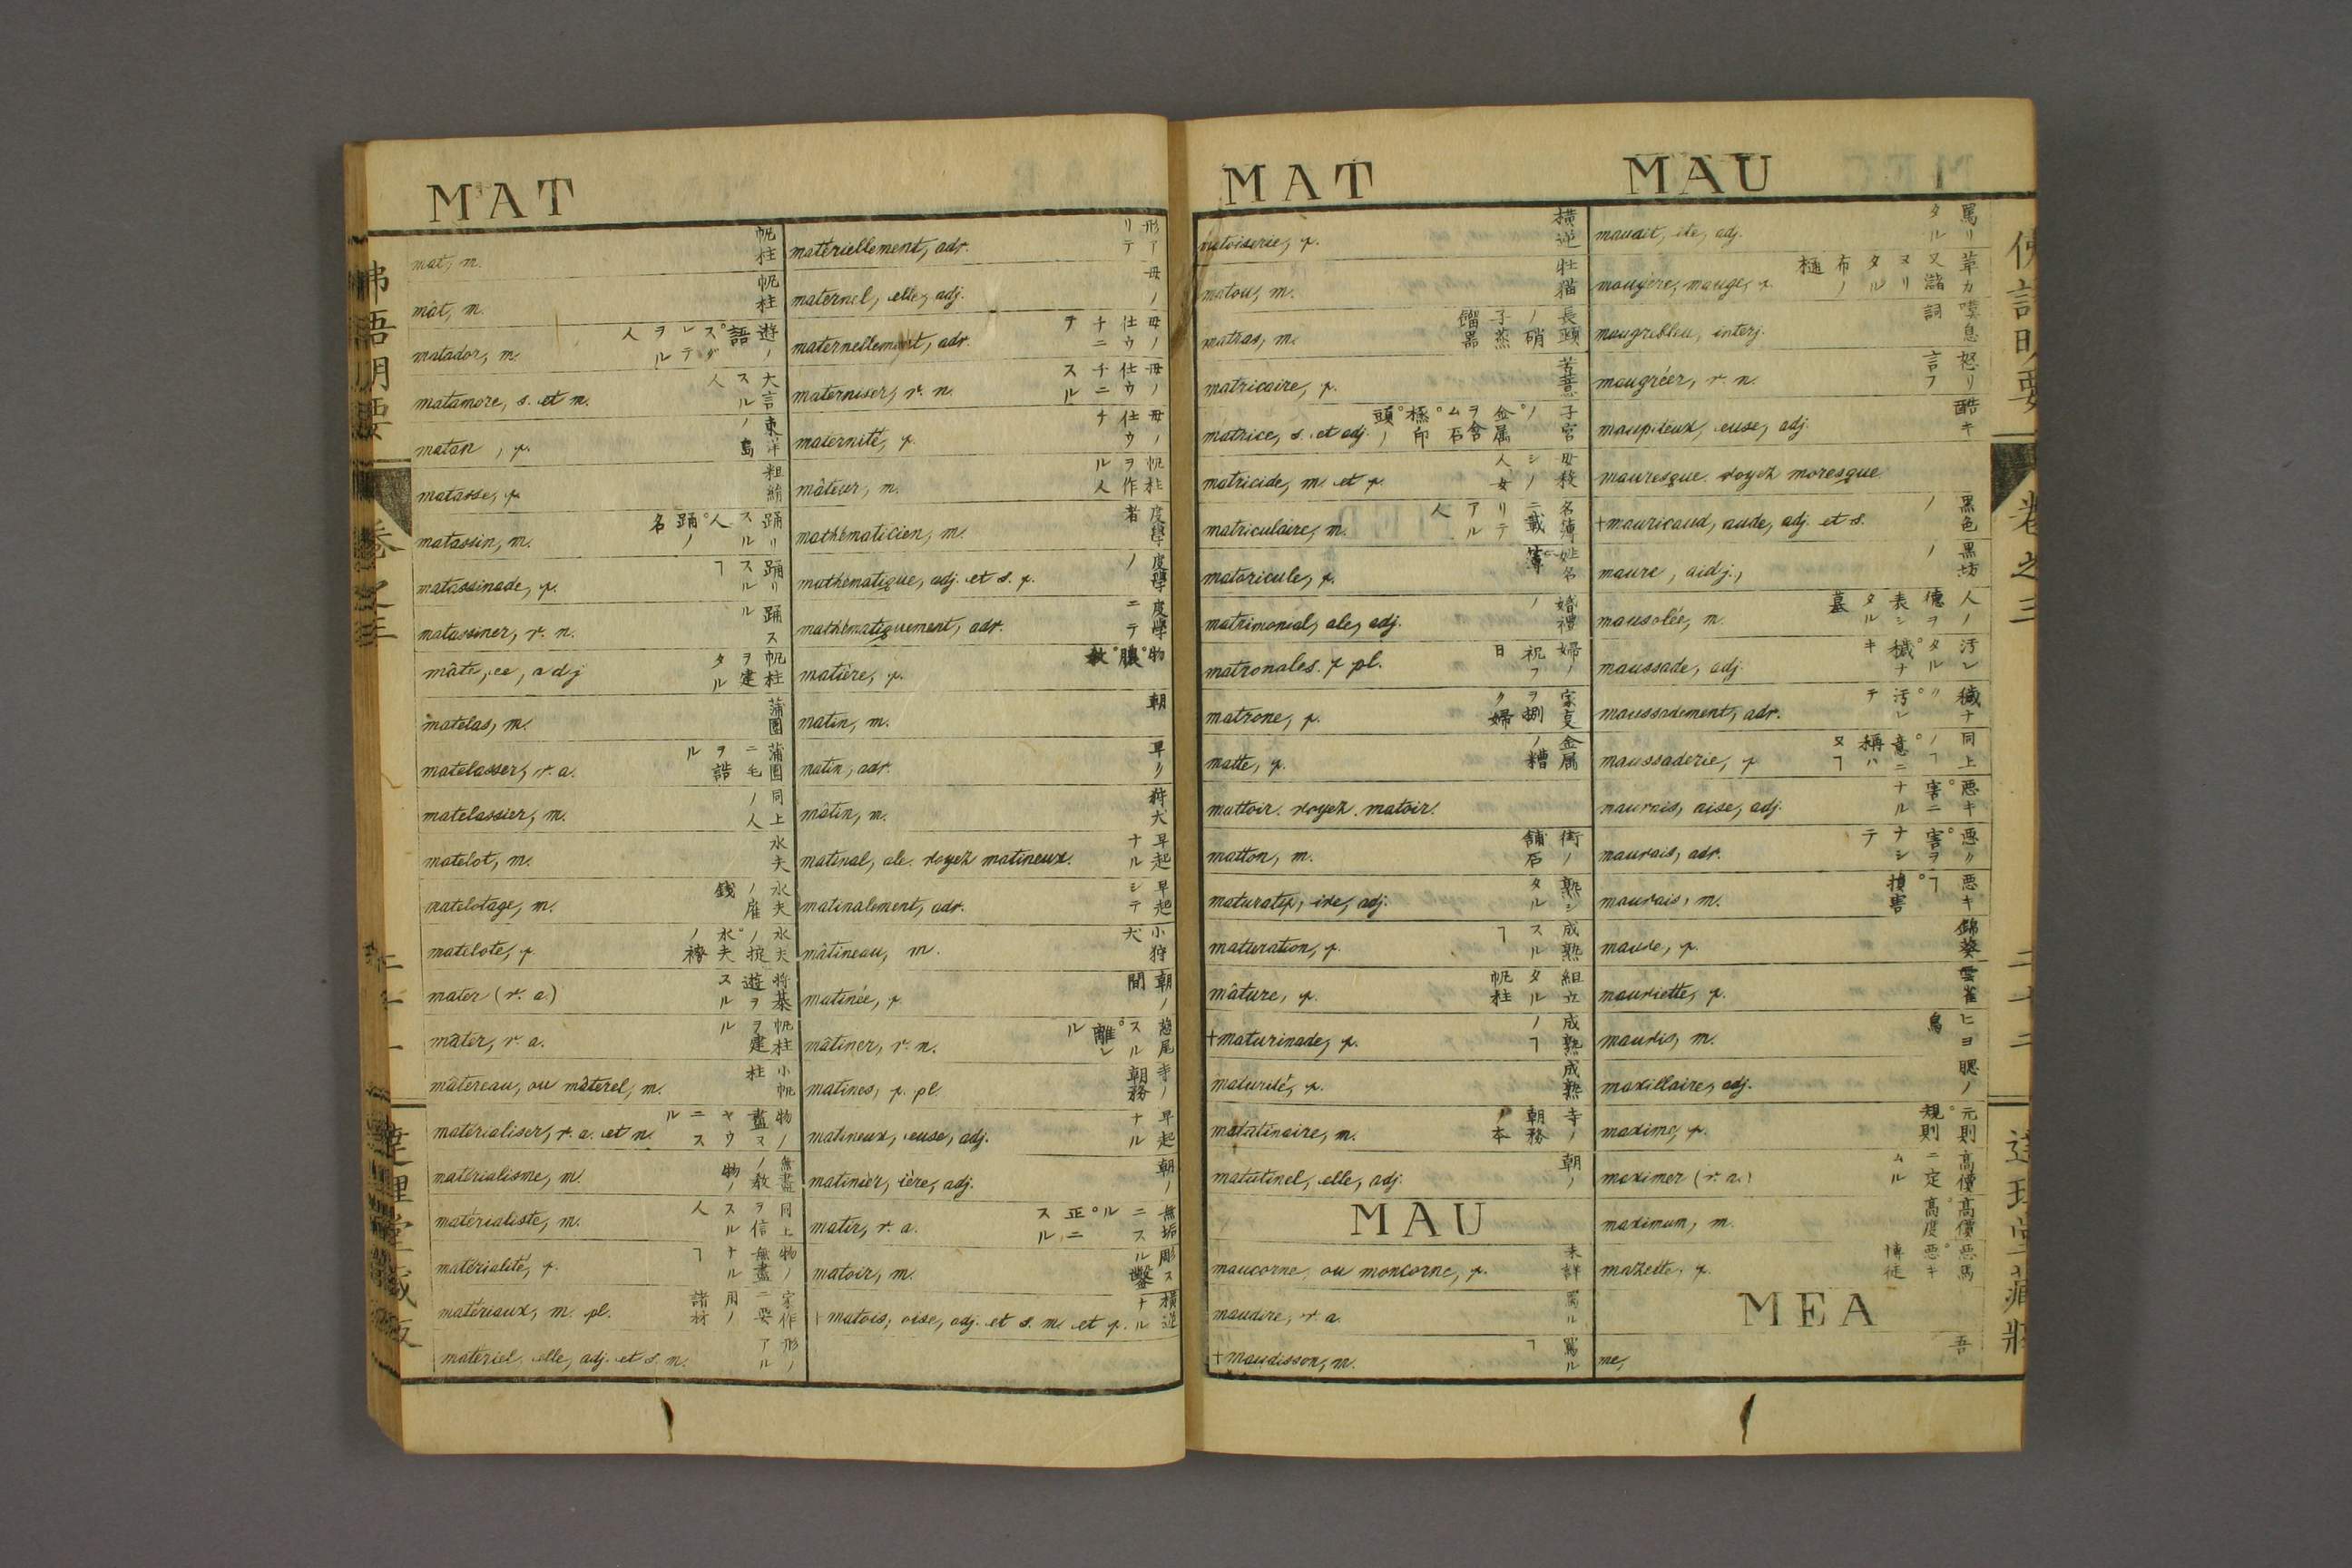 MAT
mat, m. 帆柱
mât, m. 帆柱
matador, m.
matamore, s. et m. 大言スル人
matan, f. 東洋ノ島
matasse, f.
matassin, m. 踊リスル人。踊ノ名
matassinade, f. 踊リスルヿ
matassiner, v. n. 踊スル
mâté, ée, adj 帆柱ヲ建タル
matelas, m. 蒲團
matelasser, v. a. 蒲團ニ毛ヲ詰ル
matelassier, m. 同上ノ人
matelot, m. 水夫
matelotage, m. 水夫ノ雇錢
matelote, f. 水夫ノ掟。水夫ノ
mater (v. a.) 将棊遊ヲスル
mâter, v. a. 帆柱ヲ建ル
mâtereau, ou mâterel, m. 小帆柱
matérialiser, v. a. et n. 物ノ盡ヌヤウニスル
matérialisme, m. 無盡ノ教
matérialiste, m. 同上ヲ信スル人
matérialité, f. 物ノ無盡ナルヿ
matériaux, m. pl. 家作ニ要用ノ諸材
matériel, elle, adj. et s. m. 形ノアル
matériellement, adv. 形アリテ
maternel, elle, adj. 母ノ
maternellement, adv. 母ノ仕ウチニテ
materniser, v. n. 母ノ仕ウチニスル
maternité, f. 母ノ仕ウチ
mâteur, m. 帆柱ヲ作ル人
mathématicien, m. 度學者
mathématique, adj. et s. f. 度學ノ
mathématiquement, adv. 度學ニテ
matière, f. 物。膿。
matin, m. 朝
matin, adv. 早ク
mâtin, m. 狩犬
matinal, ale. voyez matineux. 早起ナル
matinalement, adv. 早起シテ
mâtineau, m. 小狩犬
matinée, f. 朝ノ間
mâtiner, v. n.
matines, f. pl. 寺ノ朝務
matineux, euse, adj. 早起ナル
matinier, ière, adj. 朝ノ
matir, v. a. 無垢ニスル。正ニスル
matoir, m. 彫スル鑿
+matois, oise, adj. et s. m. et f. 横逆ナル
MAT MAU
matoiserie, f. 横逆
matou, m. 牡猫
matras, m. 長頸ノ硝子蒸餾器
matricaire, f.
matrice, s. et adj. 子宮ノ。金属ヲ含ム石。極印ノ頭
matricide, m. et f. 母殺シノ女人
matriculaire, m. 名簿ニ載リテアル人
matricule, f. 姓名簿
matrimonial, ale, adj. 婚禮ノ
matronales. f pl. 婦ノ祝フ日
matrone, f. 家支ヲ捌ク婦
matte, f. 金属ノ糟
mattoir. voyez. matoir.
matton, m. 街ノ舗石
maturatif, ive, adj. 熟シタル
maturation, f. 成熟スルヿ
mâture, f. 組立タル帆柱
+maturinade, f. 成熟ノヿ
maturité, f. 成熟
matutinaire, m. 寺ノ朝務ノ本
matutinel, elle, adj. 朝ノ
MAU
maucorne, ou moncorne, f. 未詳
maudire, v. a. 罵ル
+maudisson, m. 罵ルヿ
maudit, ite, adj. 罵リタル
maugère, mauge, f.
maugrebleu, interj. 嘆息詞
maugréer, v. n. 怒リ言フ
maupiteux, euse, adj. 酷キ
mauresque. voyez moresque
+mauricaud, aude, adj. et s. 黒色ノ
maure, aidj., 黒坊ノ
mausolée, m. 人ノ徳ヲ表シタル墓
maussade, adj. 汚レタル。穢ナキ
maussadement, adv. 穢ナク。汚レテ
maussaderie, f 同上ノヿ。意ニ稱ハヌヿ
mauvais, aise, adj. 悪キ。害ニナル
mauvais, adv. 悪ク。害ヲナシテ
mauvais, m. 悪キヿ。損害
mauve, f. 錦葵
mauviette, f. 雲雀
mauvis, m. ヒヨ鳥
maxillaire, adj. 腮ノ
maxime, f. 元則。規則
maximer (v. a.) 高價ニ定ムル
maximum, m. 高價。高度
mazette, f. 悪馬。悪キ博徒
MEA
me, 吾
佛語明要 卷之三 二十一 達理堂藏版
佛語明要 卷之三 二十二 達理堂藏版